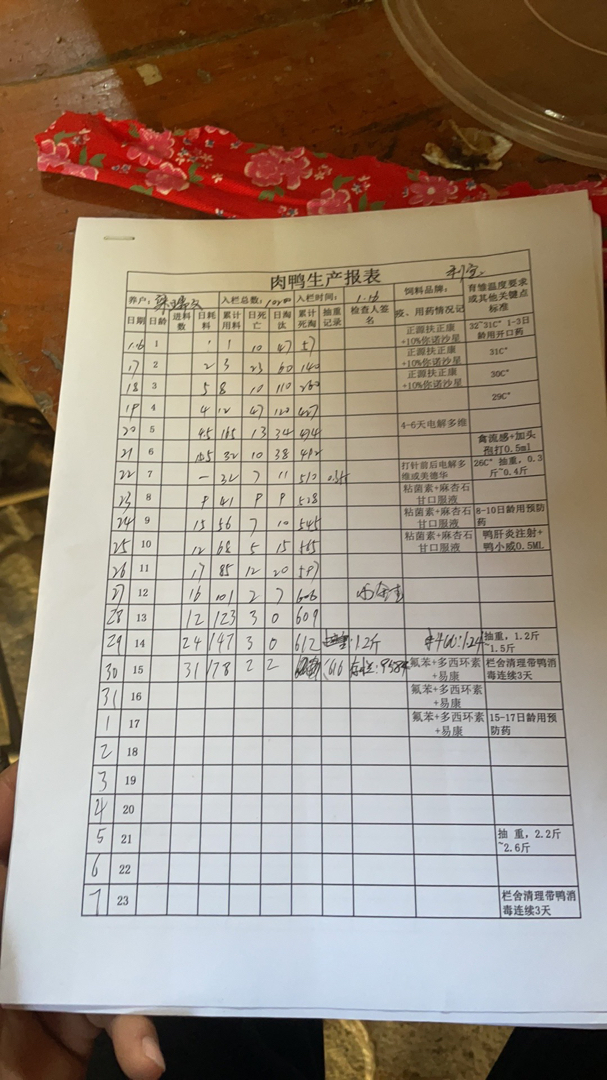 肉鸭生产报表
养户: 入栏总数: 入栏时间: 1.16 饲料品牌: 育雏温度要求或其他关键点标准
日期 日龄 进料数 日耗料 累计用料 日死亡 日淘汰 累计死淘 抽重记录 检查人签名 疫、用药情况记
1.16 1 1 1 10 47 57 正源扶正康+10%你诺沙星 32~31C° 1-3日龄用开口药
17 2 2 3 23 60 140 正源扶正康+10%你诺沙星 31C°
18 3 5 8 10 110 260 正源扶正康+10%你诺沙星 30C°
19 4 4 12 47 120 427 29C°
20 5 4.5 16.5 13 34 474 4-6天电解多维
21 6 15.5 32 10 38 492 禽流感+加头孢打0.5ml
22 7 一 32 7 11 510 打针前后电解多维或美德华 26C° 抽重，0.3斤~0.4斤
23 8 9 41 9 9 528 粘菌素+麻杏石甘口服液
24 9 15 56 7 10 545 粘菌素+麻杏石甘口服液 8-10日龄用预防药
25 10 12 68 5 15 565 粘菌素+麻杏石甘口服液 鸭肝炎注射+鸭小威0.5ML
26 11 17 85 12 20 597
27 12 16 101 2 7 606
28 13 12 123 3 0 609
29 14 24 147 3 0 612 1.2斤 抽重，1.2斤1.5斤
30 15 31 178 2 2 616 氟苯+多西环素+易康 栏舍清理带鸭消毒连续3天
31 16 氟苯+多西环素+易康
1 17 氟苯+多西环素+易康 15-17日龄用预防药
2 18
3 19
4 20
5 21 抽 重，2.2斤~2.6斤
6 22
7 23 栏舍清理带鸭消毒连续3天